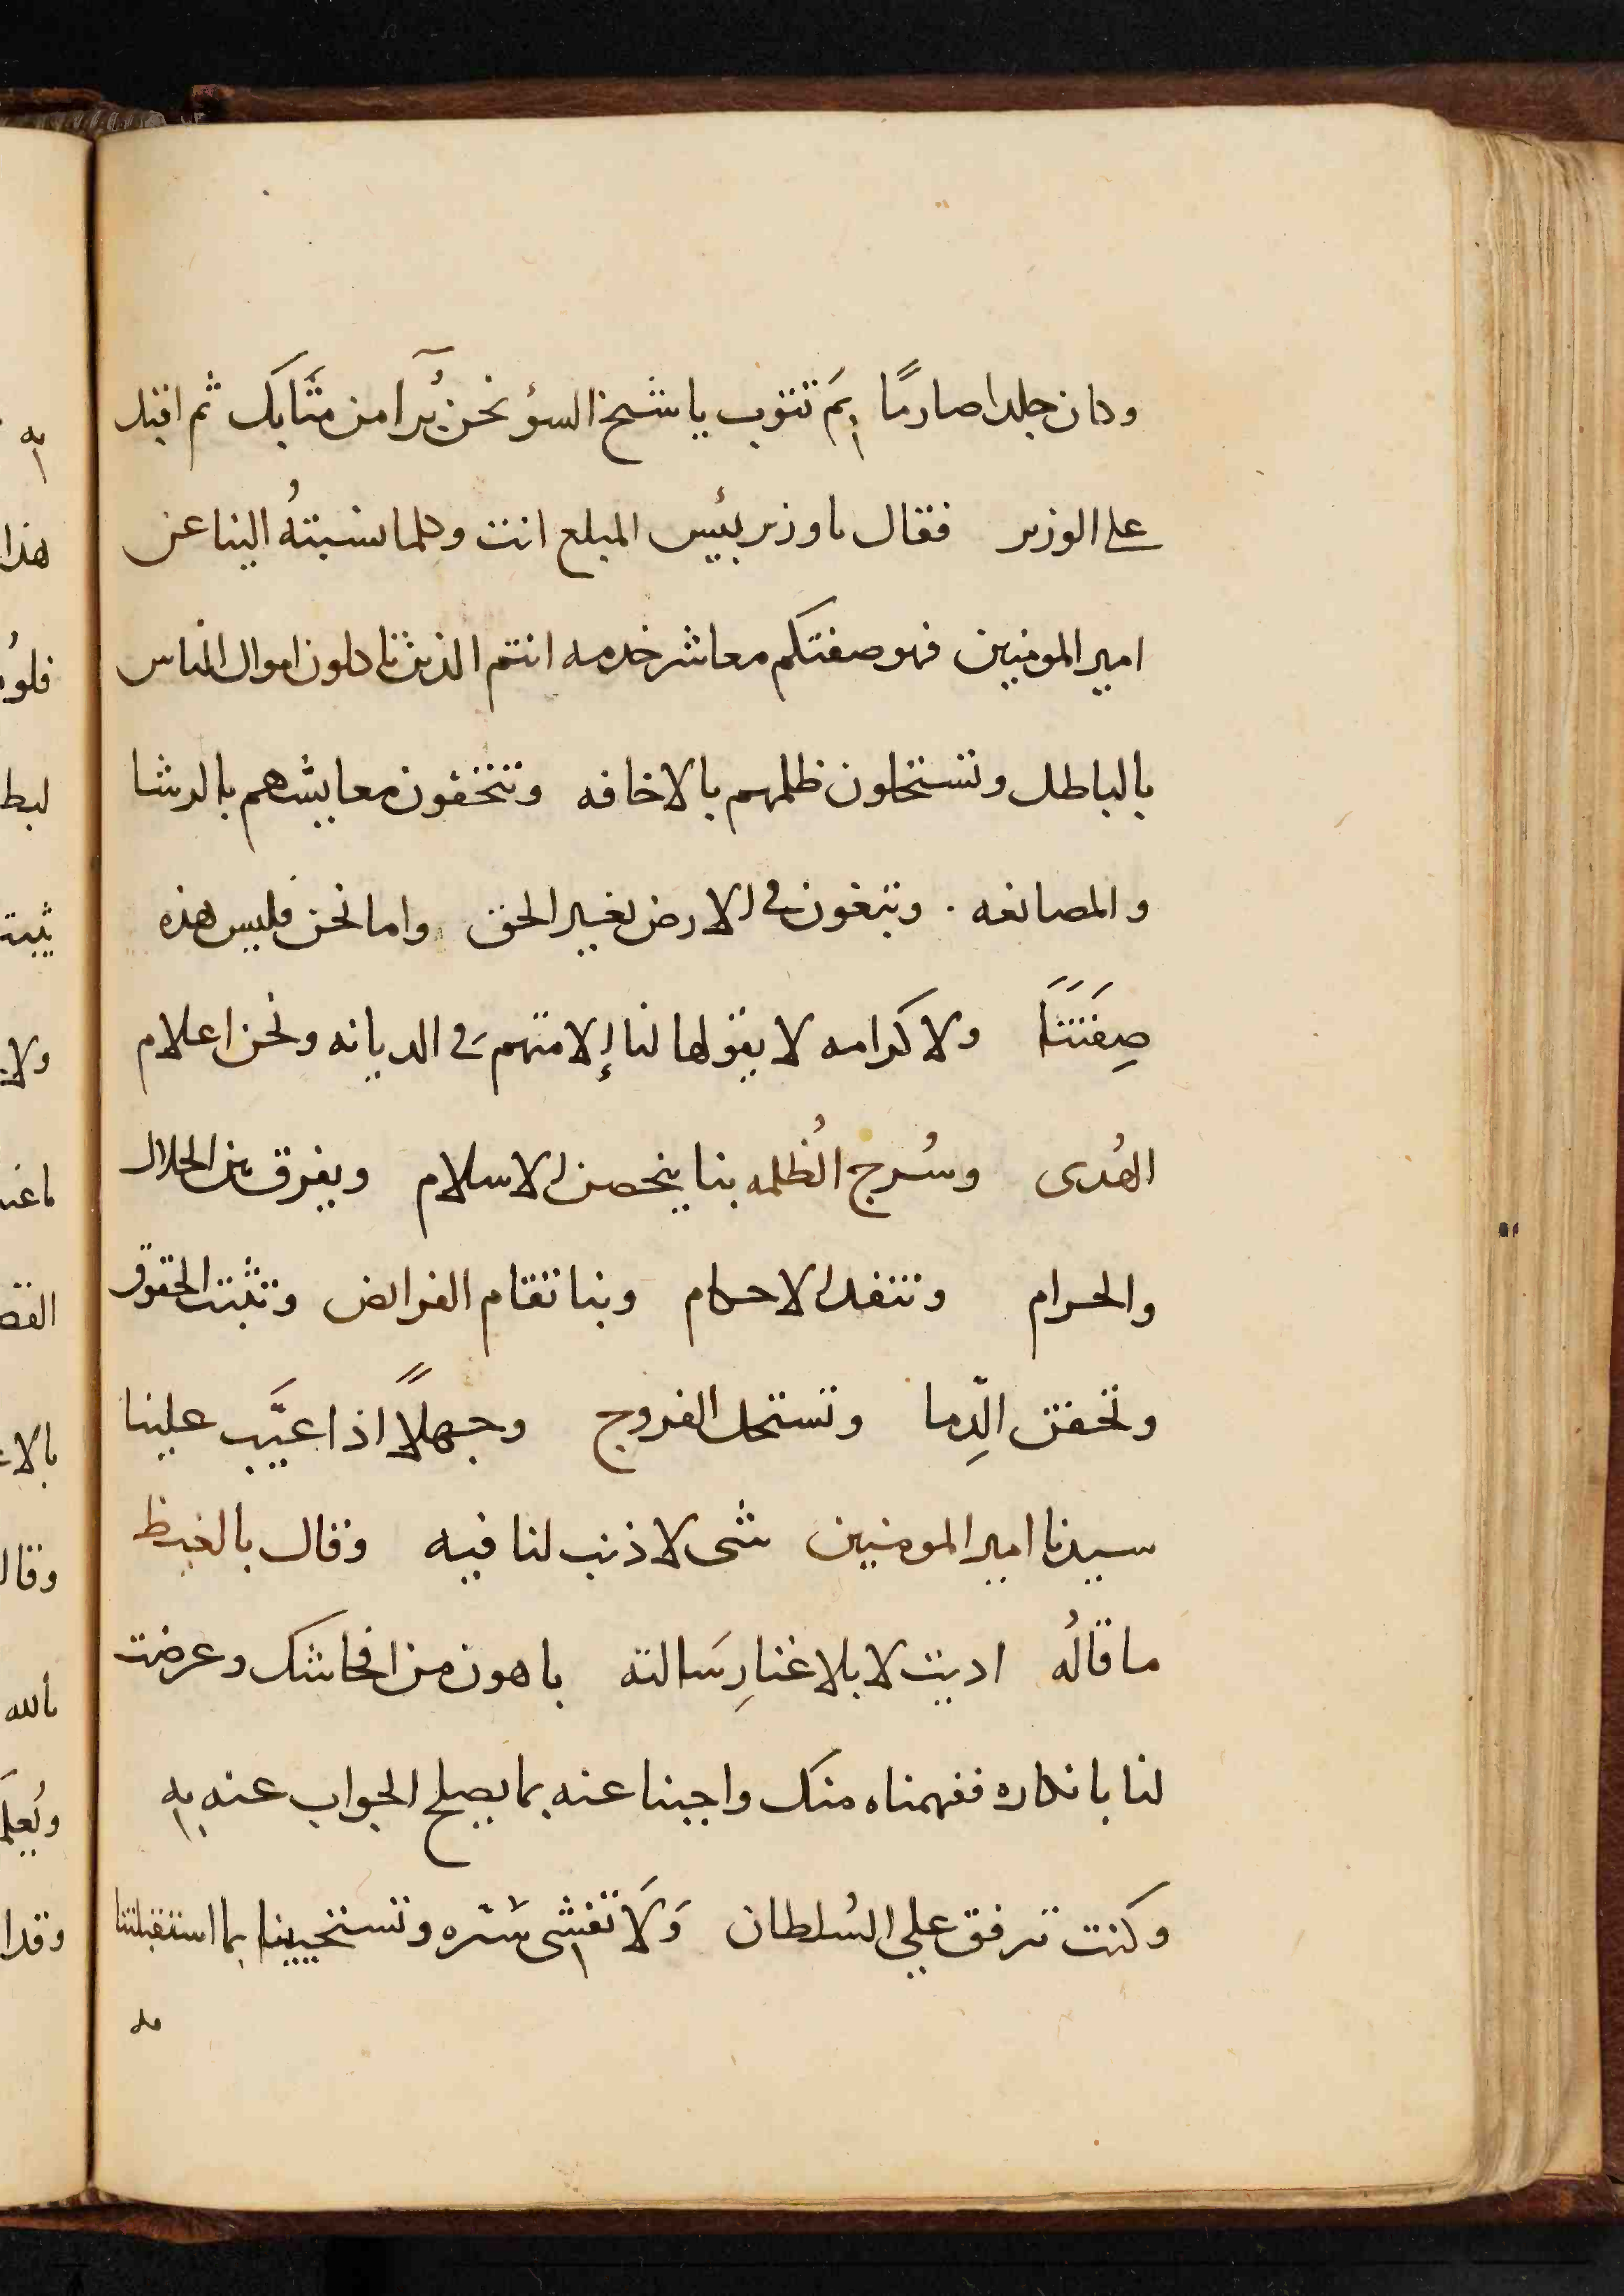 وكان جلدا صارمًا بمَ تتوب يا شيخ السؤ نحن بُرآ من متَابك ثم اقبل
على الوزير فقال ياوزير بئيس المبلع انت وكلما نسبتهُ الينا عن
امير المومنين فهو صفتكم معاشر خدمه انتم الذين تاكلون اموال الناس
بالباطل وتستحلون ظلمهم بالاخافه وتتخفون معايشهم بالرشا
والمصانعه . وتبغون في الارض بغير الحق واما نحن فليس هذه
صِفَتَنَا ولا كرامه لا يقولها لنا إلا متهم في الديانه ونحن اعلام
الهُدى وسُرج الُظلمه بنا ينحصن الاسلام ويفرق بين الحلال
والحرام وتنفد الاحكام وبنا تقام الفرائض وتثبت الحقوق
وتحقن الّدِما وتستحل الفروج وجهلًا اذا عيَّب علينا
سيدنا امير المومنين شى لا ذنب لنا فيه وقال بالغيظ
ما قالُه اديت لا بلاغنا رِسَالته باهون من افحاشك وعرضت
لنا بانكاره ففهمناه منك واجبنا عنه بما يصلح الجواب عنه به
وكنت ترفق علي السُلطان وَلَا تفشى سَره وتستحيينا بما استقبلتنا